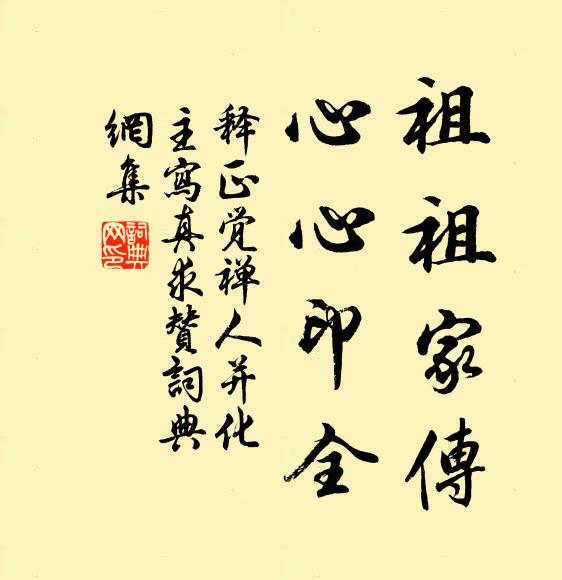 祖祖家傳
心心印全
释正觉禅人并化
主寫真求贊詞典
網集
詞典网印